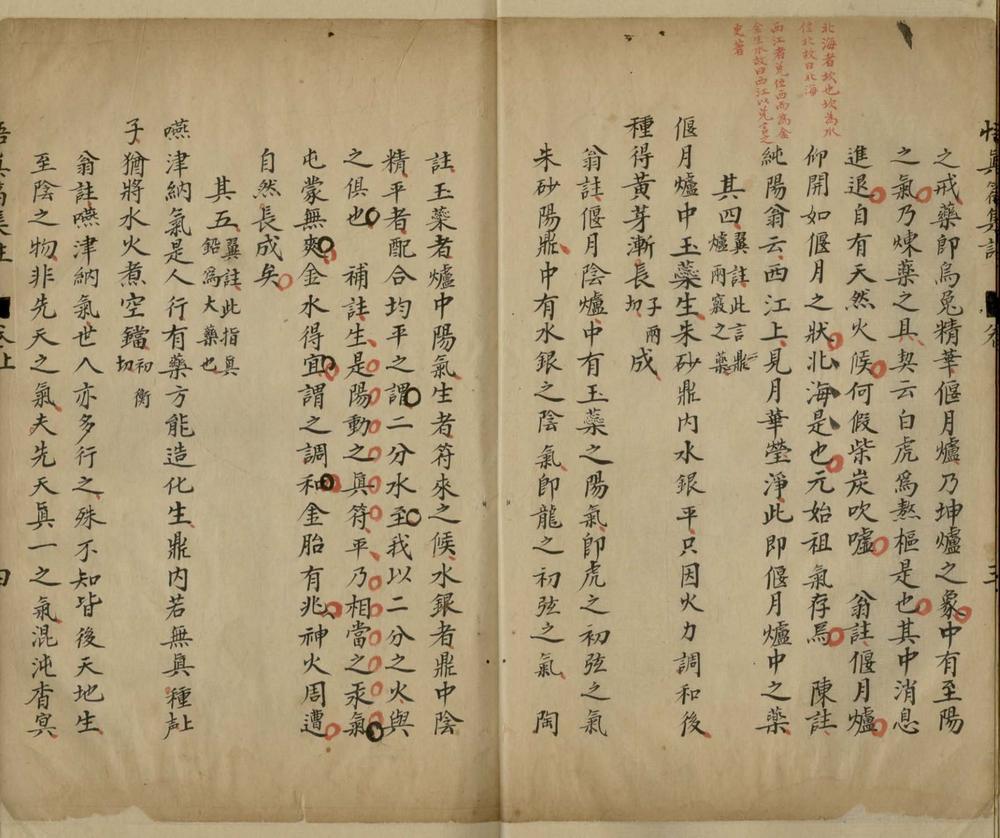 北海者坎也坎為水
位北故曰北海
西江者兌位西而為金
金生水故曰西江以先言之
更著
之戒藥即烏兔精華偃月爐乃坤爐之象中有至陽
之氣乃煉藥之具契云白虎為熬樞是也其中消息
進退自有天然火候何假柴炭吹噓 翁註偃月爐
仰開如偃月之狀北海是也元始祖氣存焉 陳註
純陽翁云西江上見月華瑩淨此即偃月爐中之藥
其四翼註此言鼎爐兩竅之藥
偃月爐中玉蘂生朱砂鼎內水銀平只因火力調和後
種得黃芽漸長子兩切成
翁註偃月陰爐中有玉蘂之陽氣即虎之初弦之氣
朱砂陽鼎中有水銀之陰氣即龍之初弦之氣 陶
註玉蘂者爐中陽氣生者符來之候水銀者鼎中陰
精平者配合均平之謂二分水至我以二分之火與
之俱也 補註生是陽動之真符平乃相當之汞氣
屯蒙無爽金水得宜謂之調和金胎有兆神火周遭
自然長成矣
其五翼註此指真鉛為大藥也
嚥津納氣是人行有藥方能造化生鼎內若無真種上聲
子猶將水火煮空鐺初衡切
翁註嚥津納氣世人亦多行之殊不知皆後天地生
至陰之物非先天之氣夫先天真一之氣混沌杳冥